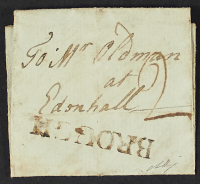 To Mr Oldman
at
Edenhall 2
BROUGH